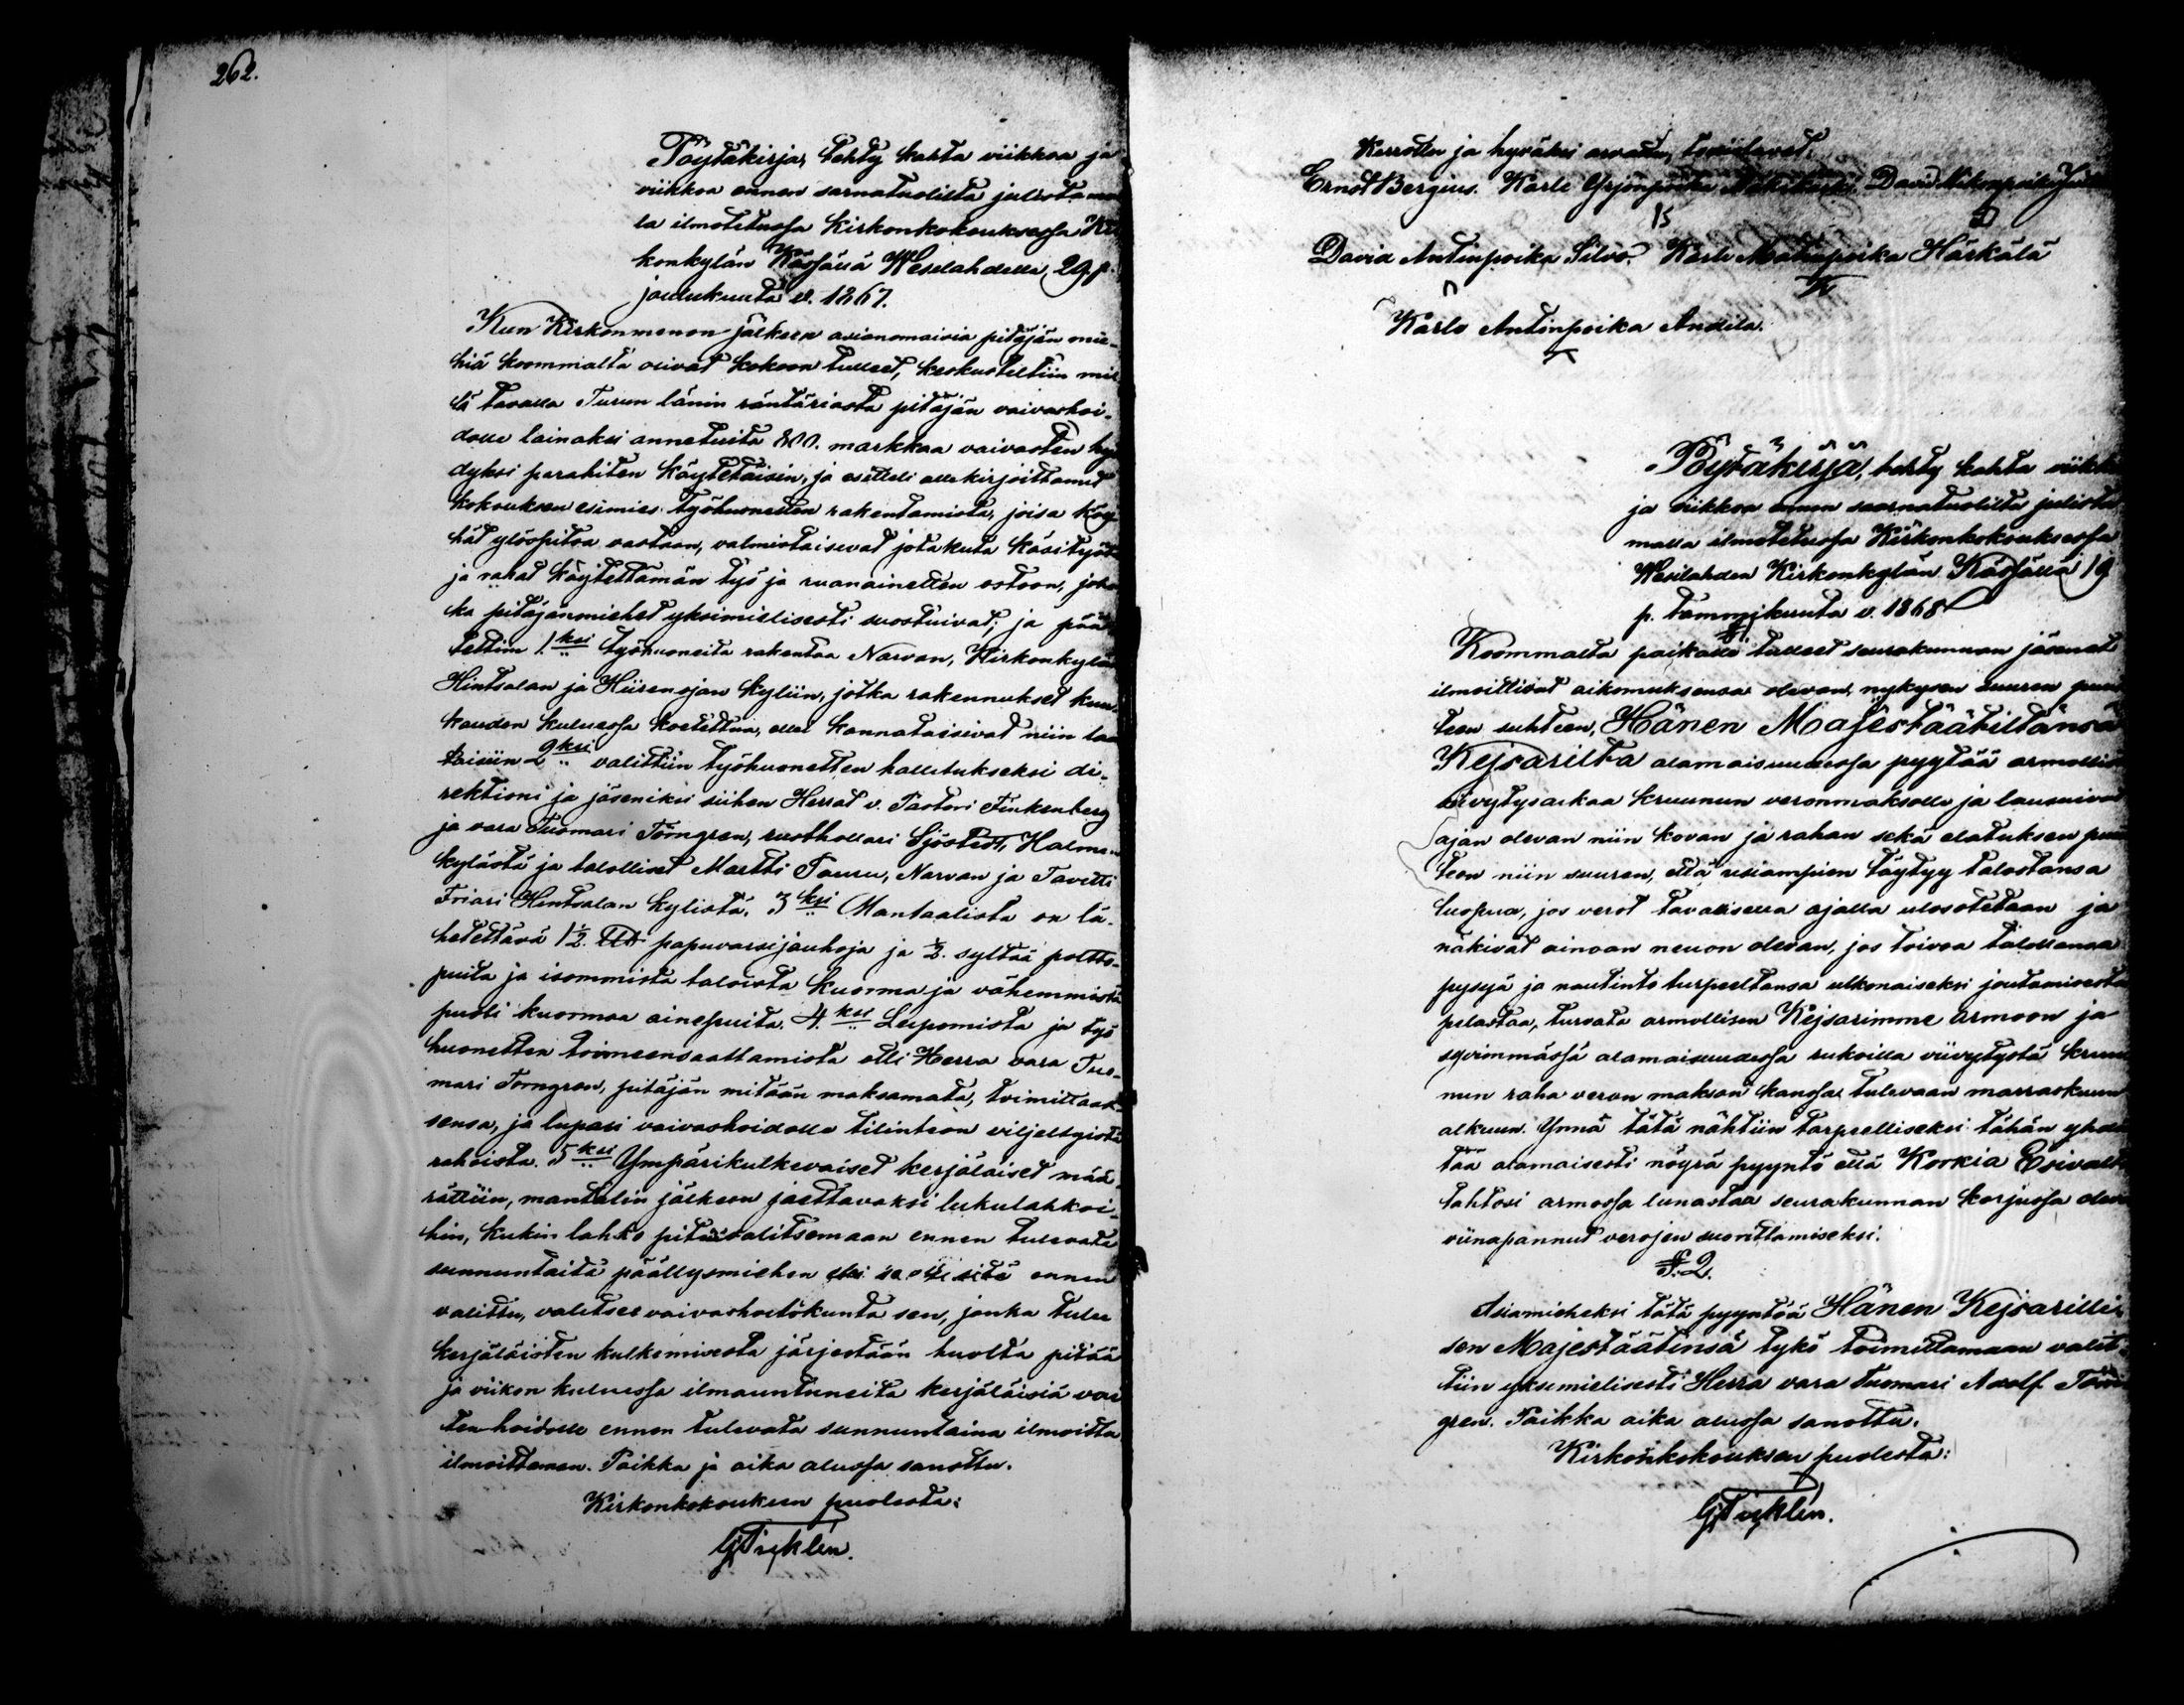 262.
Pöytäkirja, tehty kahta viikkoa ja
viikkoa ennen sarnatuolilta julistamal
la ilmotetussa Kirkonkokouksessa Kir
konkylän Kässässä Wesilahdella, 29 p.
joulukuuta v. 1867.
Kun Kirkonmenon jälkeen asianomaisia pitäjän mie-
hiä koommalta olivat kokoon tulleet, keskusteltiin mil
lä tavalla Turun länin räntäriasta pitäjän vaivashoi-
dolle lainaksi annetuita 800. markkaa vaivasten hyö
dyksi parahiten käytetäisin, ja esitteli allekirjoittanut
kokouksen esimies työhuonetten rakentamista, joisa köy
hät ylöspitoa vastaan, valmistaisevat jotakuta käsityötä
ja rahat käytettämän työ ja ruanainetten ostoon, joho
ka pitäjänmiehet yksimielisesti suostuivat; ja päät
tettiin 1.ksi työhuoneita rakentaa Narvan, Kirkonkylän
Hintsalan ja Hiirenojan kyliin, jotka rakennukset kuu-
kauden kuluessa koetettua, ellei kannataisivat niin lau
taisiin 2ksi valittiin työhuonetten hallitukseksi di-
rektioni ja jäseniksi siihen Herrat v. Pastori Finkenberg
ja vara Tuomari Törngren, rusthollari Sjöstedt, Halmeen
kylästä ja talolliset Martti Pauru, Narvan ja Tavetti
Friari Hintsalan kylistä. 3ksi Mantaalista on lä-
hetettävä 1½. papuvarsijauhoja ja ½. syltää poltto-
puita ja isommista taloista kuorma ja vähemmistä
puoli kuormaa ainepuita. 4.ksi Leipomista ja työ
huonetten toimeensaattamista otti Herra vara Tuo-
mari Törngren, pitäjän mitään maksamata, toimittaak-
sensa, ja lupasi vaivashoidolle tilinteon viljellyistä
rahoista. 5ksi Ympärikulkevaiset kerjäläiset mää-
rättiin, mantalin jälkeen jaettavaksi lukulahkoi-
hin, kukin lahko pitää valitsemaan ennen tulevata
sunnuntaita päällysmiehen ennen
valittu, valitsee vaivashoitokunta sen, jonka tulee
kerjäläisten kulkemisesta järjestään huolta pitää
ja viikon kuluessa ilmauntuneita kerjäläisiä vai
ten hoidolle ennen tulevata sunnuntaina ilmoitta
ilmoittaman. Paikka ja aika alussa sanottu.
Kirkonkokouksen puolesta:
G. Ticklén.
Kerrottu ja hyväksi arvattu, todistavat.
Ernst Bergius. Karle Yrjönpoika David
David Antinpoika Silvo. Karle Matinpoika Härkälä
Karlo Antinpoika Andila.
Pöytäkirja, tehty kahta viikko
ja viikkoa ennen saarnatuolilta julista
malla ilmotetussa Kirkonkokouksessa
Wesilahden Kirkonkylän Kässässä 19
p. tammikuuta v. 1868
§ 1.
Koommalta paikalle tulleet seurakunnan jäsenet
ilmoittivat aikomuksensa olevan, nykysen suuren puut
teen suhteen, Hänen Majestäätiltänsä
Kejsarilta alamaisuudessa pyytää armollis
viivytysaikaa kruunun veronmaksolle ja lausuivat
ajan olevan niin kovan ja rahan sekä elatuksen puut
teen niin suuren, että usiampien täytyy talostansa
luopua, jos verot tavallisella ajalla ulosotetaan ja
näkivät ainoan neuon olevan, jos toivoa talollansa
pysyä ja nautinto turpeeltansa ulkonaiseksi joutamisesta
pelastaa, turvata armollisen Kejsarimme armoon ja
syvimmässä alamaisuudessa rukoilla viivytystä kruu
nun raha veron makson kanssa tulevaan marraskuun
alkuun. Ynnä tätä nähtiin tarpeelliseksi tähän yhdis
tää alamaisesti nöyrä pyyntö että Korkia Esivalta
tahtosi armossa lunastaa seurakunnan korjussa oleva
viinapannut verojen suorittamiseksi.
§. 2.
Asiamieheksi tätä pyyntöä Hänen Kejsarilli-
sen Majestäätinsä tykö toimittamaan valit-
tiin yksimielisesti Herra vara tuomari Adolf Törn
gren. Paikka aika alussa sanottu.
Kirkonkokouksen puolesta:
G. Ticklén.